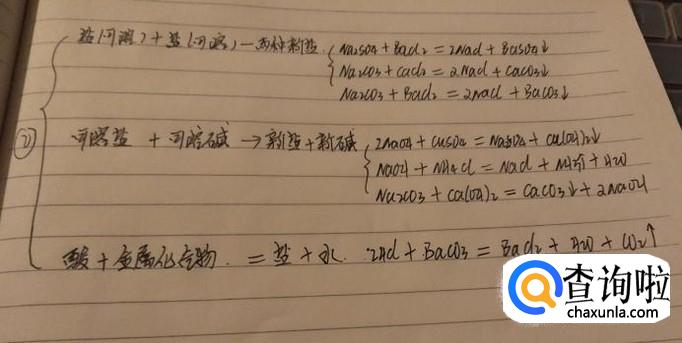 盐(可溶)+盐(可溶)—两种新盐 Na2SO4 + BaCl2 = 2NaCl + BaSO4↓
Na2CO3 + CaCl2 = 2NaCl + CaCO3↓
Na2CO3 + BaCl2 = 2NaCl + BaCO3↓
② 可溶盐 + 可溶碱 → 新盐 + 新碱 2NaOH + CuSO4 = Na2SO4 + Cu(OH)2↓
NaOH + NH4Cl = NaCl + NH3↑ + H2O
Na2CO3 + Ca(OH)2 = CaCO3↓ + 2NaOH
酸 + 金属化合物 = 盐 + 水. 2HCl + BaCO3 = BaCl2 + H2O + CO2↑
查询啦
chaxunla.com